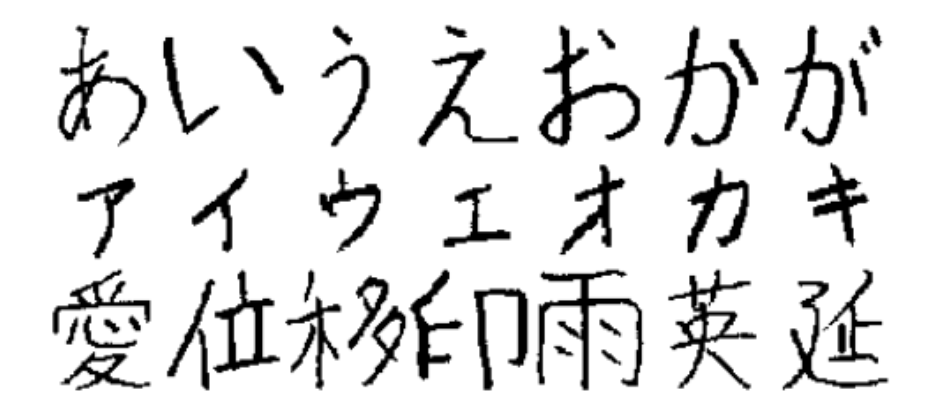 あいうえおかが
アイウエオカキ
愛位移印雨英延